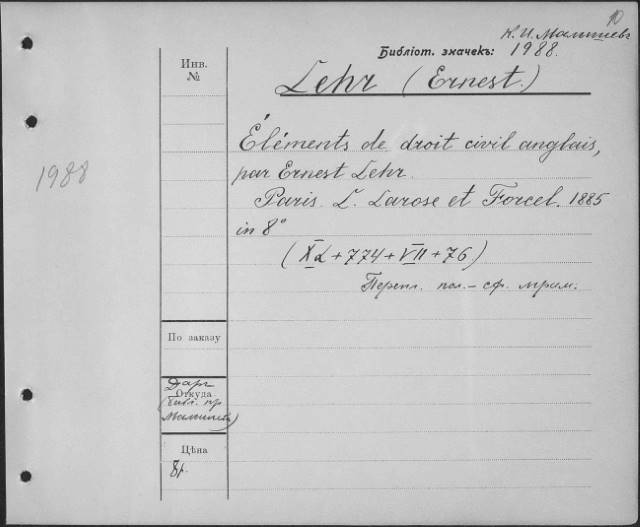 10
К. И. Малышевъ
Библіот. значекъ: 1988.
Инв. №
Lehr (Ernest.)
1988
Éléments de droit civil anglais,
par Ernest Lehr.
Paris. L. Larose et Forcel. 1885
in 8°
(XL+774+VII+76)
Перепл. пол.-сф.
По заказу
Даръ
Откуда
(Библ. пр
Малышевъ)
Цѣна
8р.